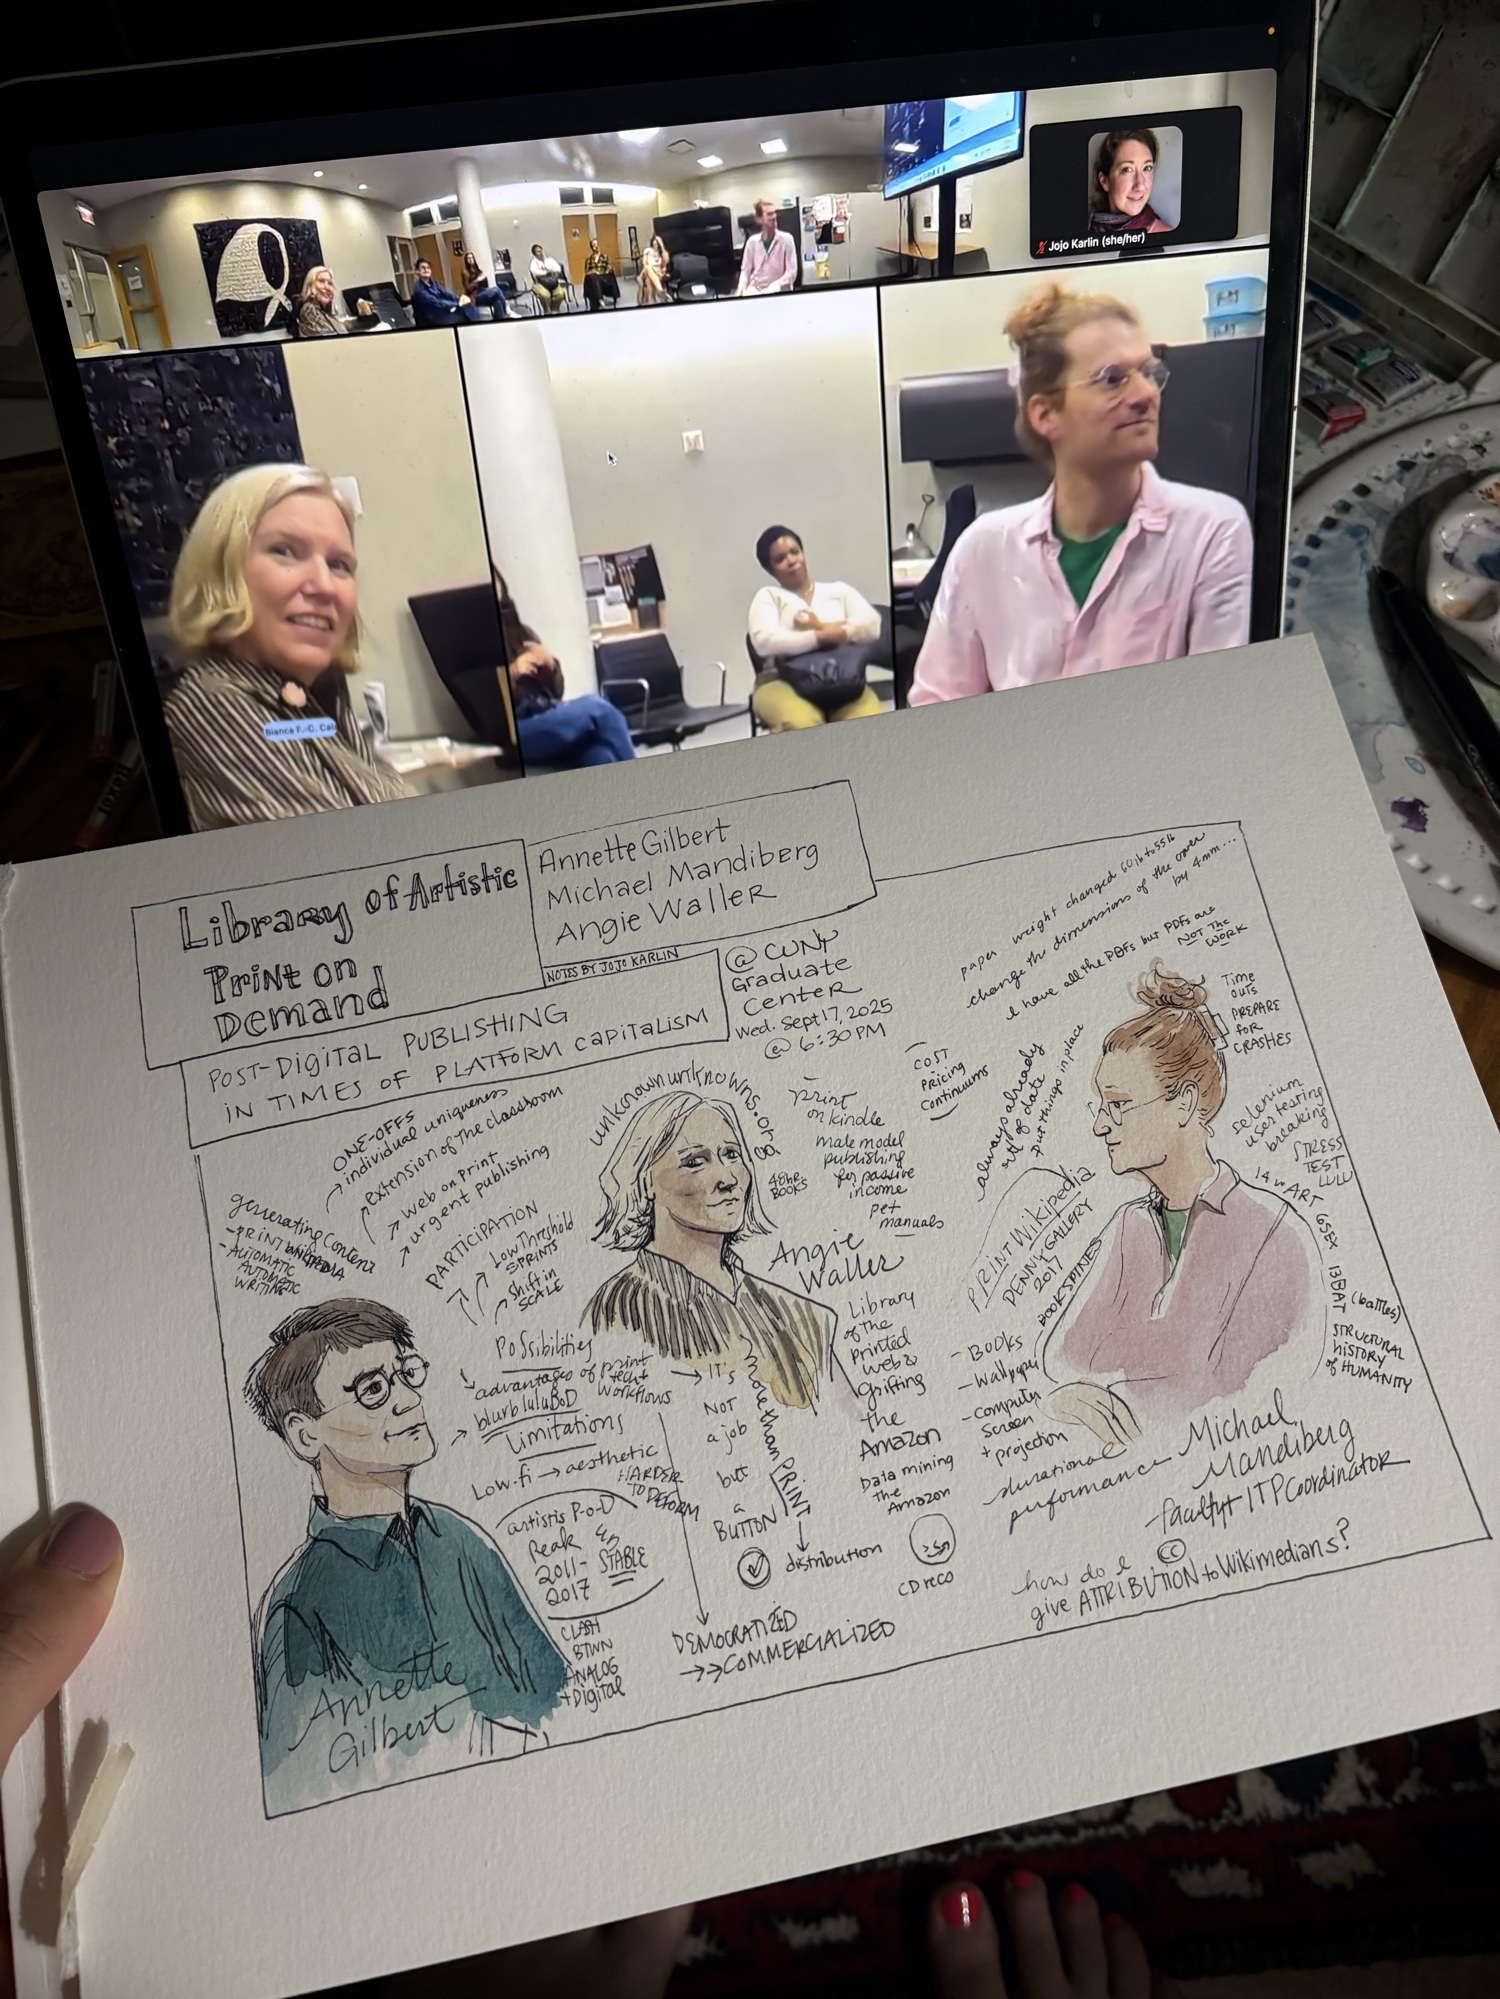 Jojo Karlin (she/her)
Bianca F.-C. Cala
Library of Artistic
Print on
Demand
Annette Gilbert
Michael Mandiberg
Angie Waller
NOTES BY JOJO KARLIN
POST-DIGITAL PUBLISHING
IN TIMES OF PLATFORM CAPITALISM
@ CUNY
Graduate
Center
Wed. Sept 17, 2025
@ 6:30 PM
ONE-OFFS
individual uniqueness
extension of the classroom
web on print
urgent publishing
generating content
- PRINT WIKIPEDIA
- AUTOMATIC
AUTOMATIC
WRITING
PARTICIPATION
Low Threshold
SPRINTS
Shift in
SCALE
Possibilities
advantages of print
tech +
workflows
blurb lulu BoD
Limitations
Low-fi → aesthetic
HARDER
TO DEFORM
artistis P-o-D
Peak
2011-
2017
STABLE
CLASH
BTWN
ANALOG
+ Digital
Annette
Gilbert
unknownunknowns.org
print
on kindle
male model
publishing
for passive
income
pet
manuals
48hr
BOOKS
COST
Pricing
Continuums
Angie
Waller
Library
of the
Printed
Web &
Grifting
the
Amazon
Data mining
the
Amazon
→ IT'S
NOT
a job
but
a
BUTTON
more than PRINT
distribution
CD reco
DEMOCRATIZED
→>> COMMERCIALIZED
paper weight changed 60 lb to 55 lb
change the dimensions of the cover
by 4mm...
I have all the PDFs but PDFs are
NOT the
WORK
Time
outs
PREPARE
for
CRASHES
always already
out of date
put things in place
selenium
user testing
breaking
STRESS
TEST
LULU
PRINT Wikipedia
DENNY GALLERY
2017
BOOK SPINES
- BOOKS
- Wallpaper
- Computer
Screen
+ projection
durational
performance
ART
(battles)
STRUCTURAL
HISTORY
of HUMANITY
Michael
Mandiberg
- faculty + ITP Coordinator
how do I
cc
give ATTRIBUTION to Wikimedians?